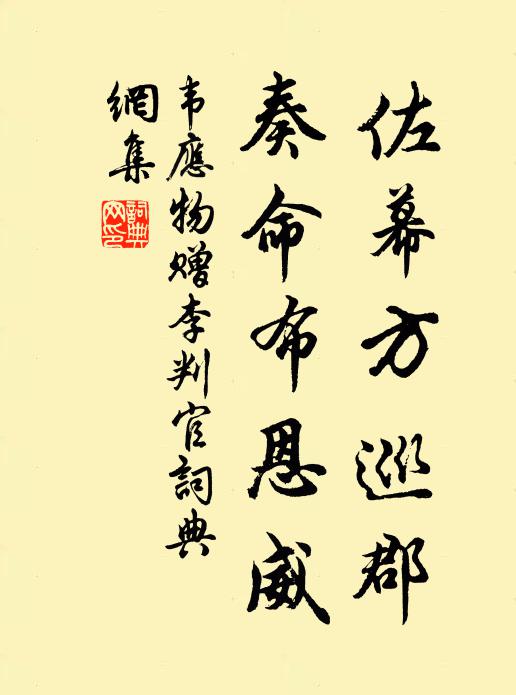 佐幕方巡郡
奏命布恩威
韦應物赠李判官詞典
網集
詞典網印